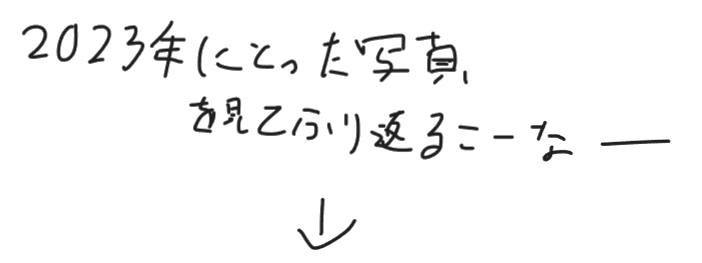 2023年にとった写真
を見てふり返るこーなー
↓